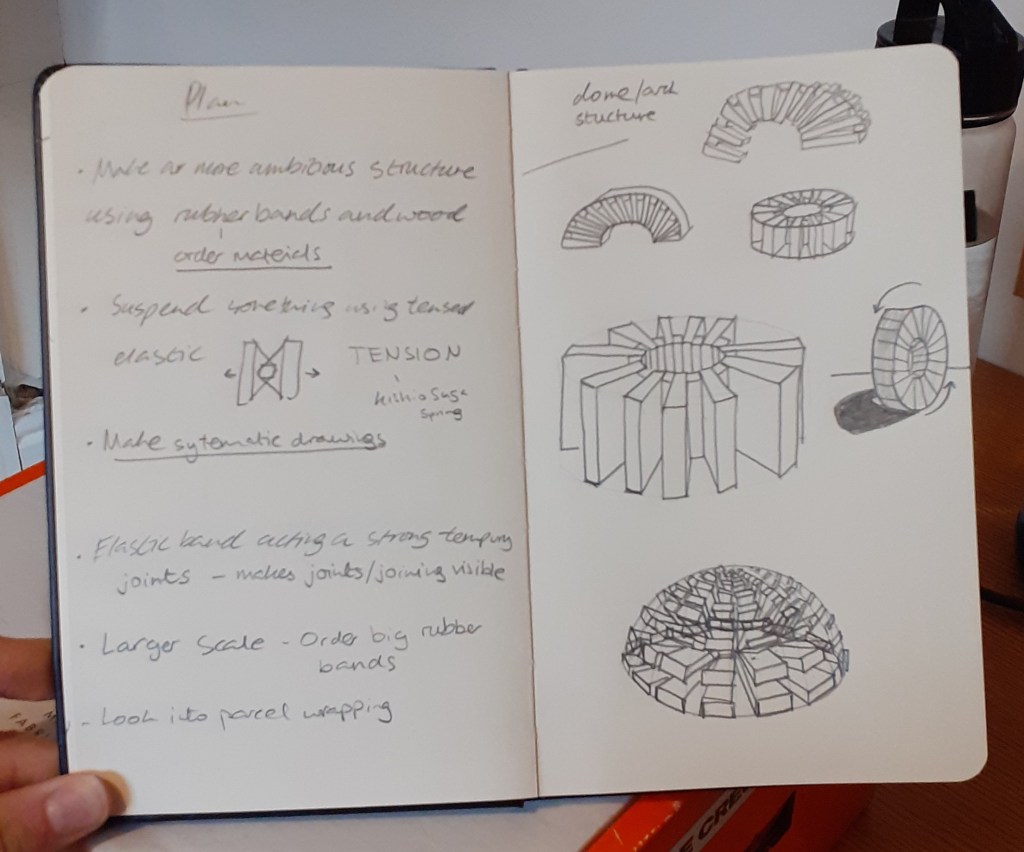 Plan
• Make a more ambitious structure
using rubber bands and wood
order materials
• Suspend something using tensed
elastic
TENSION
Kishio Suga
Spring
• Make sytematic drawings
• Elastic band acting a strong tempory
joints – makes joints/joining visible
• Larger scale – Order big rubber
bands
– Look into parcel wrapping
dome/arch
stucture
FABRI
E CRE